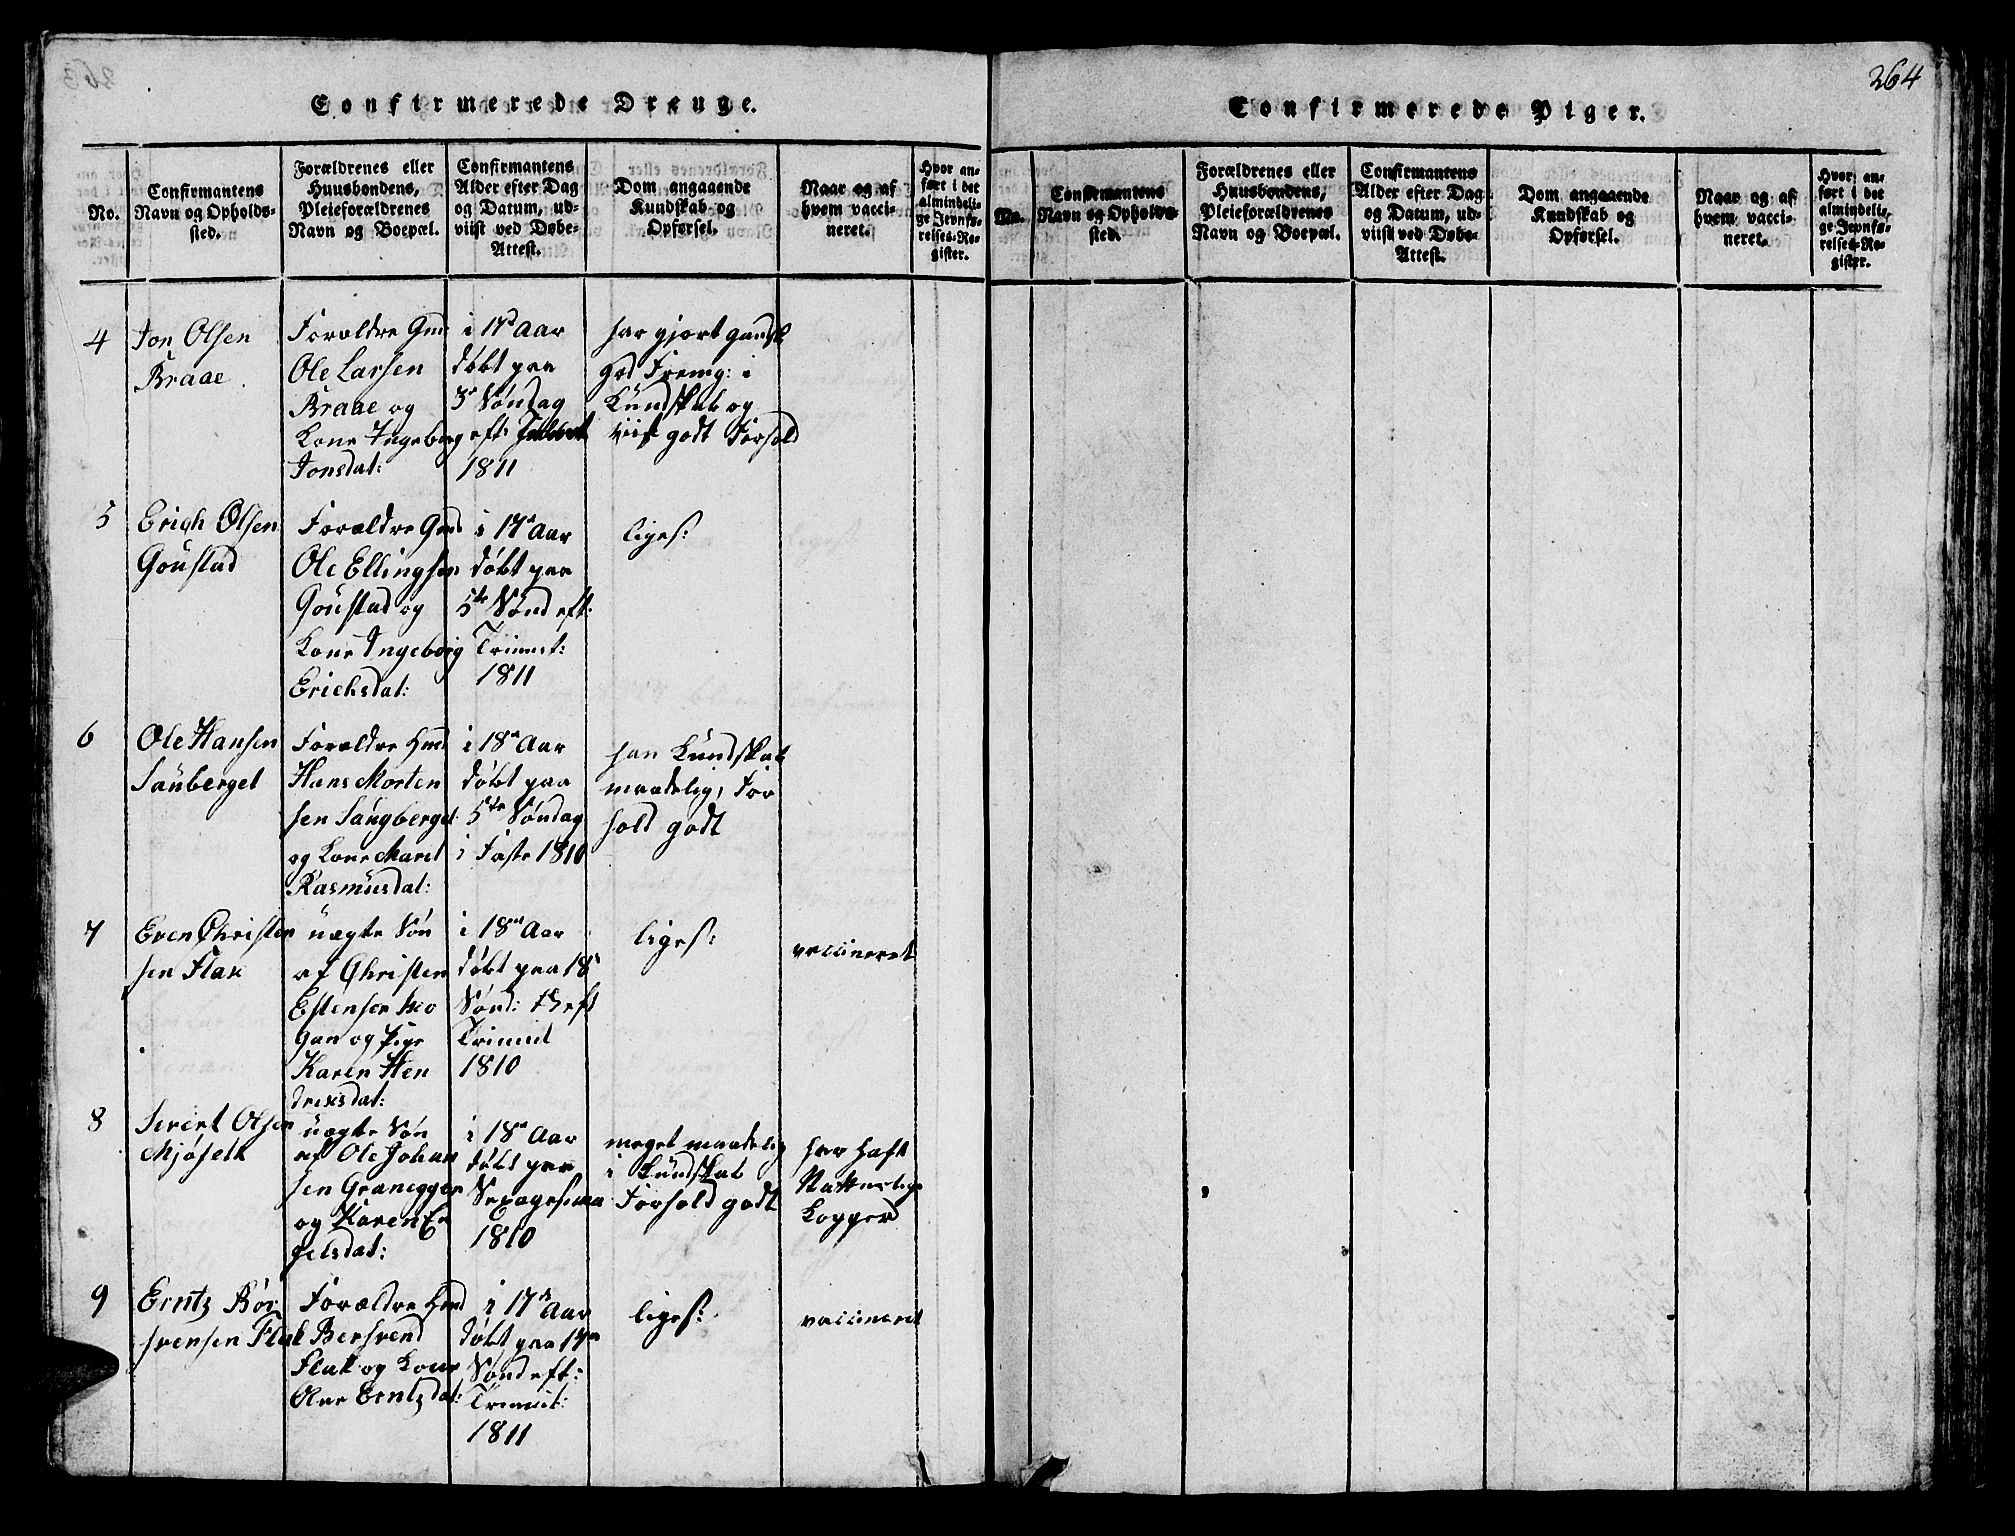 264
Confirmerede Drenge.
No.
Confirmantens
Navn og Opholds-
sted.
Forældrenes eller
Huusbondens,
Pleieforældrenes
Navn og Boepæl.
Confirmantens
Alder efter Dag
og Datum, ud-
viist ved Døbe-
Attest.
Dom angaaende
Kundskab og
Opførsel.
Naar og af
hvem vacci-
neret.
Hvor an-
ført i det
almindeli-
ge Jevnfø-
relses-Re-
gister.
4
Jon Olsen
Braae.
Forældre Gmd
Ole Larsen
Braae og
Kone Ingeborg
Jonsdat:
i 17d Aar
døbt paa
3d Søndag
eft:
1811
har gjort gandsk
god Fremg: i
Kundskab og
viist godt Forhold
5
Erich Olsen
Goustad
Forældre Gmd
Ole Ellingsen
Goustad og
Kone Ingeborg
Erichsdat:
i 17d Aar
døbt paa
5te Sønd eft:
Trinit:
1811
liges:
6
Ole Hansen
Sauberget
Forældre Hmd
Hans Morten
sen Saugberget
og Kone Marit
Rasmusdat:
i 18d Aar
døbt paa
5te Søndag
i Faste 1810
han Kundskab
maadelig, For
hold godt
7
Even Christen
sen Flak
uægte Søn
af Christen
Estensen
gan og Pige
Karen Hen
drixsdat:
i 18d Aar
døbt paa 18d
Sønd: eft
Trinit
1810
liges:
vaccineret
8
Sivert Olsen
Mjøselk
uægte Søn
af Ole Johan
sen Graneggen
og Karen En
gelsdat:
i 18d Aar
døbt paa
Sexagesima
1810
meget maadelig
i Kundskab
Forhold godt
har haft
Naturlige
Kopper
9
Erntz Bør
svensen Flak
Forældre Hmd
Bersvend
Flak og Kone
Olava Erntzdat:
i 17d Aar
døbt paa 17de
Sønd eft:
Trinit:
1811
liges:
vaccineret
Confirmerede Piger.
No.
Confirmantens
Navn og Opholds-
sted.
Forældrenes eller
Huusbondens,
Pleieforældrenes
Navn og Boepæl.
Confirmantens
Alder efter Dag
og Datum, ud-
viist ved Døbe-
Attest.
Dom angaaende
Kundskab og
Opførsel.
Naar og af
hvem vacci-
neret.
Hvor an-
ført i det
almindeli-
ge Jevnfø-
relses-Re-
gister.